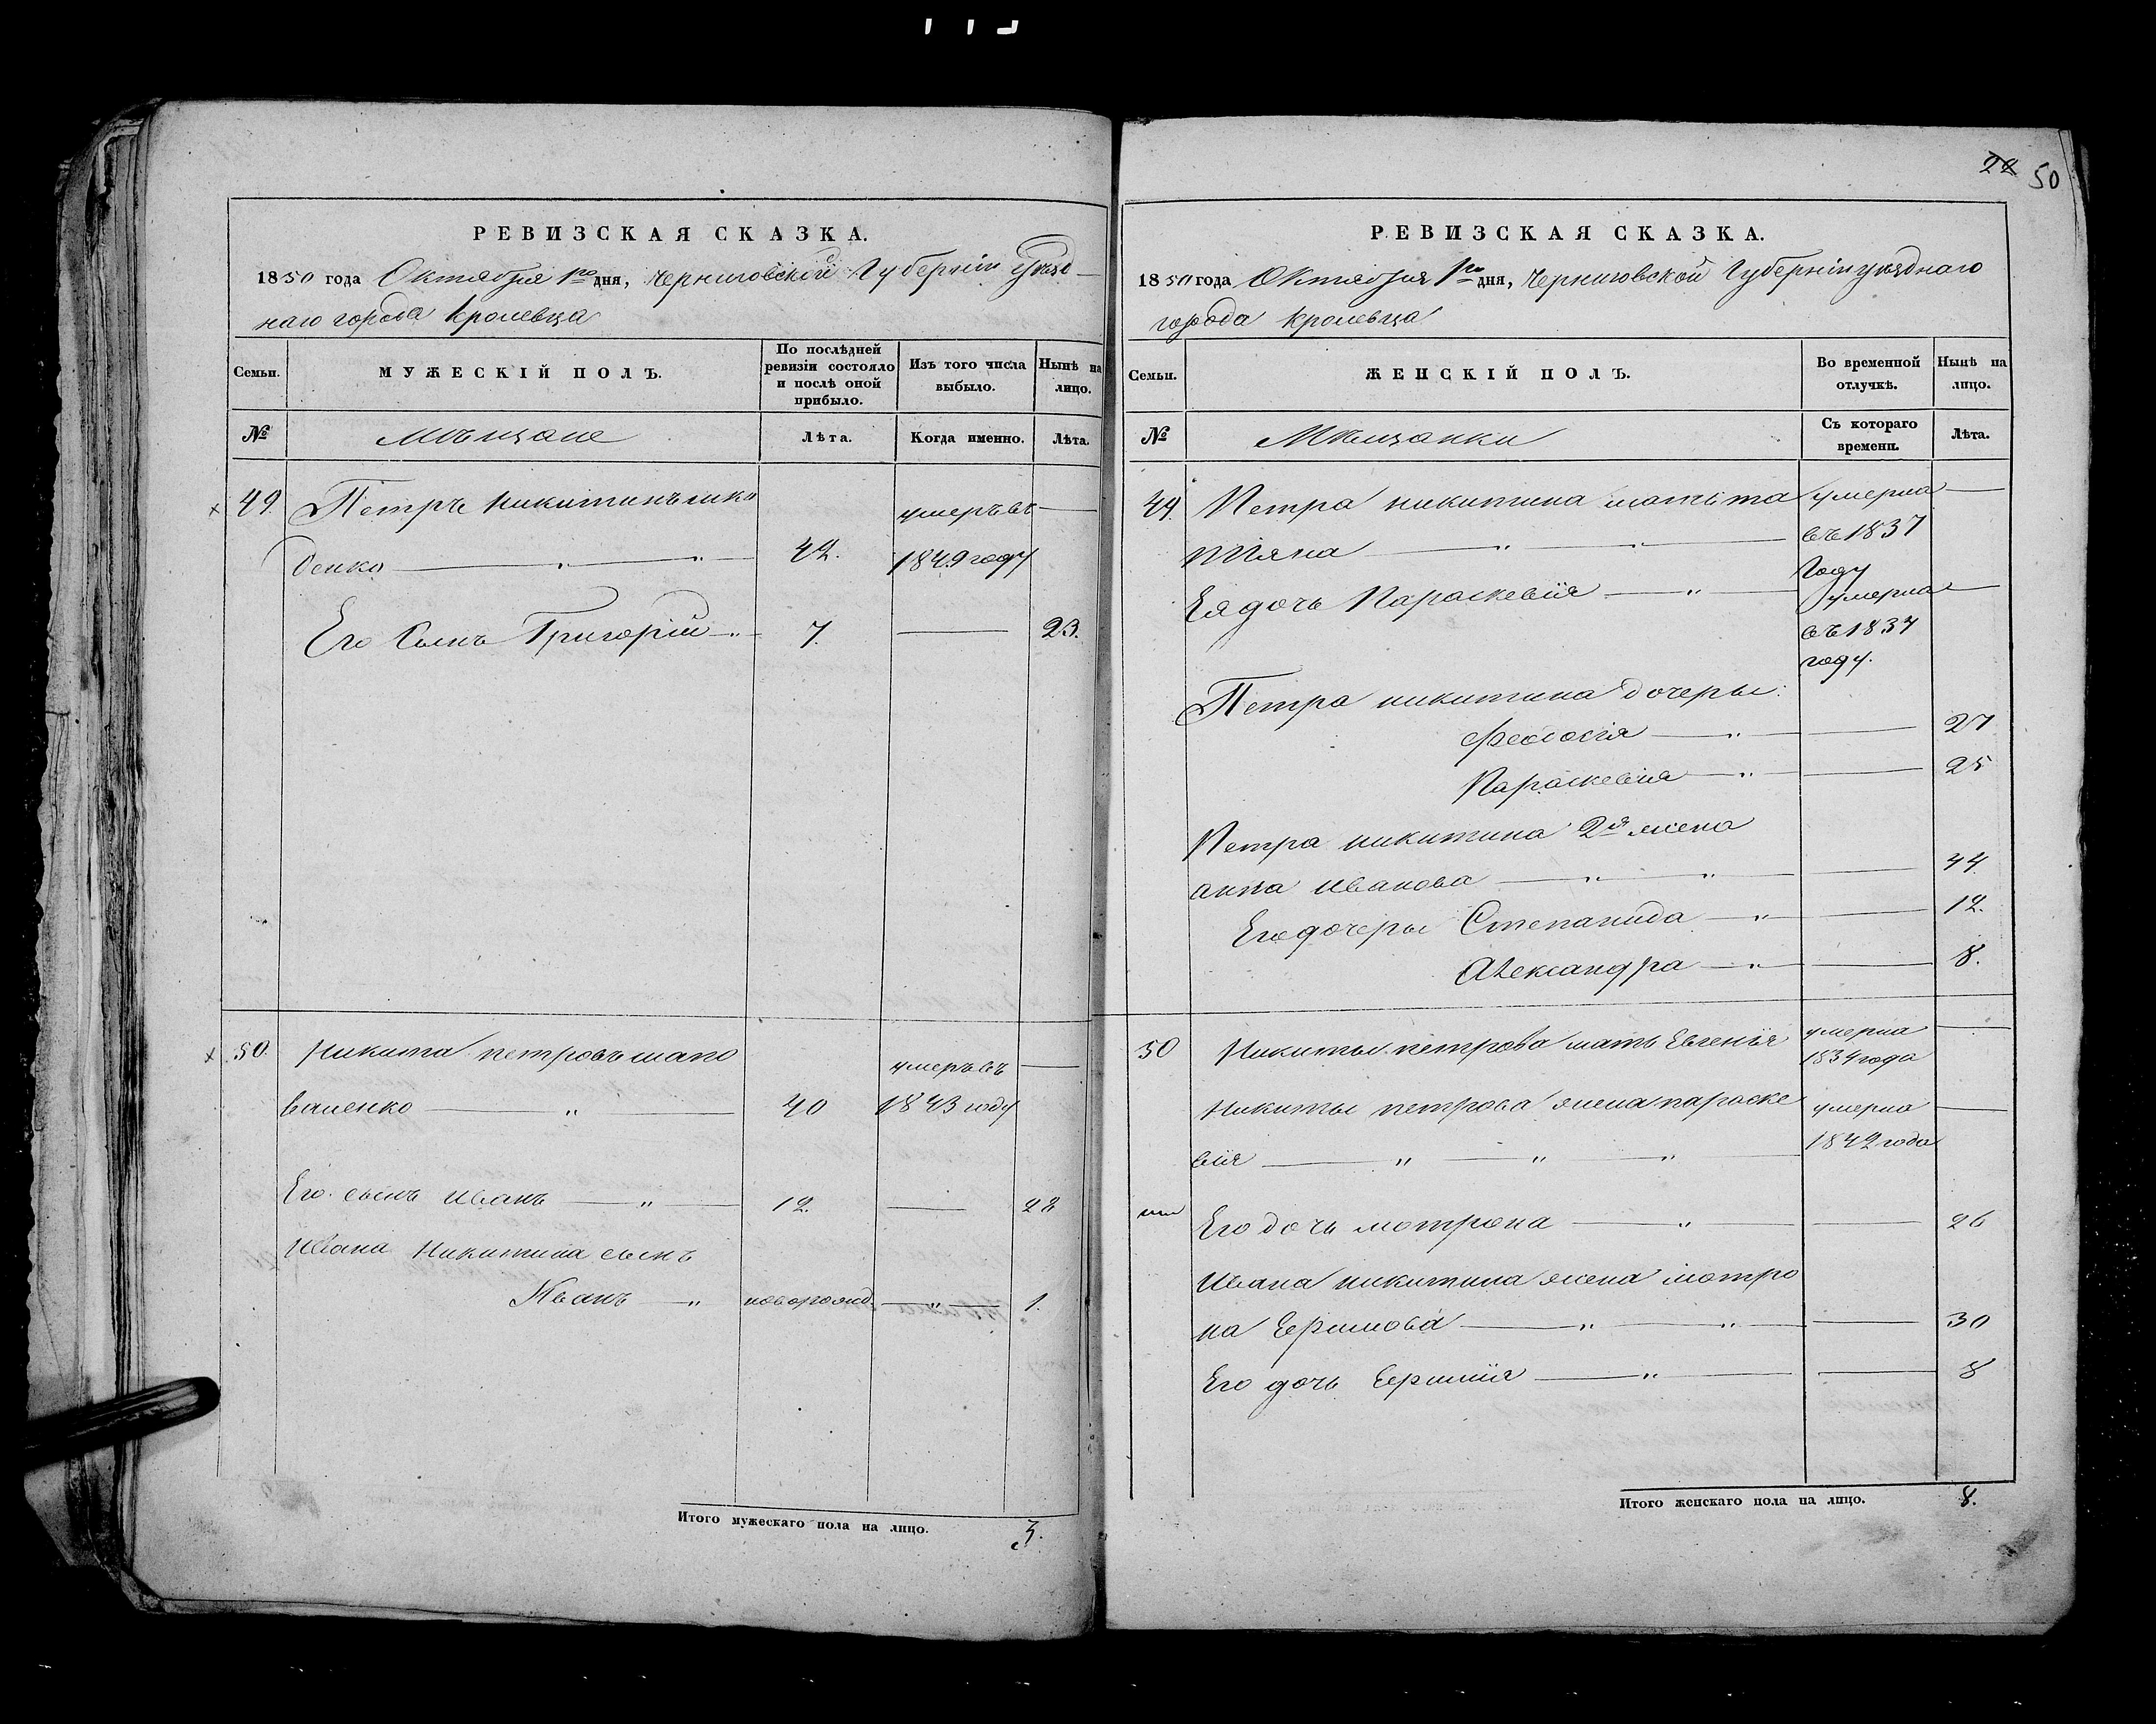 РЕВИЗСКАЯ СКАЗКА.
1850 года Октября 1го дня, Черниговской Губерніи уѣзд-
наго города Кролевца
Семьи. МУЖЕСКІЙ ПОЛЪ. По послѣдней ревизіи состояло и послѣ оной прибыло. Изъ того числа выбыло. Нынѣ на лицо.
№ Мѣщане Лѣта. Когда именно. Лѣта.
49. Петръ Никитинъ
денко — " — " — 42. умеръ въ 1849 году —
Его Сынъ Григорій — " — 7. — 23.
50. Никита петровъ шапо
валенко — " — 40 умеръ въ 1843 году —
Его сынъ Иванъ — " — 12. — 22
Ивана Никитина сынъ
Иванъ — " новорожд. — " — 1.
Итого мужескаго пола на лицо. 3.
22 50
РЕВИЗСКАЯ СКАЗКА.
1850 года Октября 1го дня, Черниговской Губерніи уѣзднаго
города Кролевца
Семьи. ЖЕНСКІЙ ПОЛЪ. Во временной отлучкѣ. Нынѣ на лицо.
№ Мѣщанки Съ котораго времени. Лѣта.
49. Петра никитина мать та умерла —
тіяна — " — " — въ 1837
году
Ея дочь Параскевія — " — умерла —
въ 1837
году.
Петра никитина дочеры:
Феодосія — " — — 27
Параскевія — " — — 25
Петра никитина 2я жена
анна иванова — " — " — — 44
Его дочеры Степанида — " — — 12.
Александра — " — — 8.
50 Никиты петрова мать Евгенія умерла —
1834 года
Никиты петрова жена параске умерла —
вія — " — " — " — 1842 года
Его дочь мотрона — " — — 26
Ивана никитина жена мотро
на Ефимова — " — " — — 30
Его дочь Ефимія — " — — 8
Итого женскаго пола на лицо. 8.